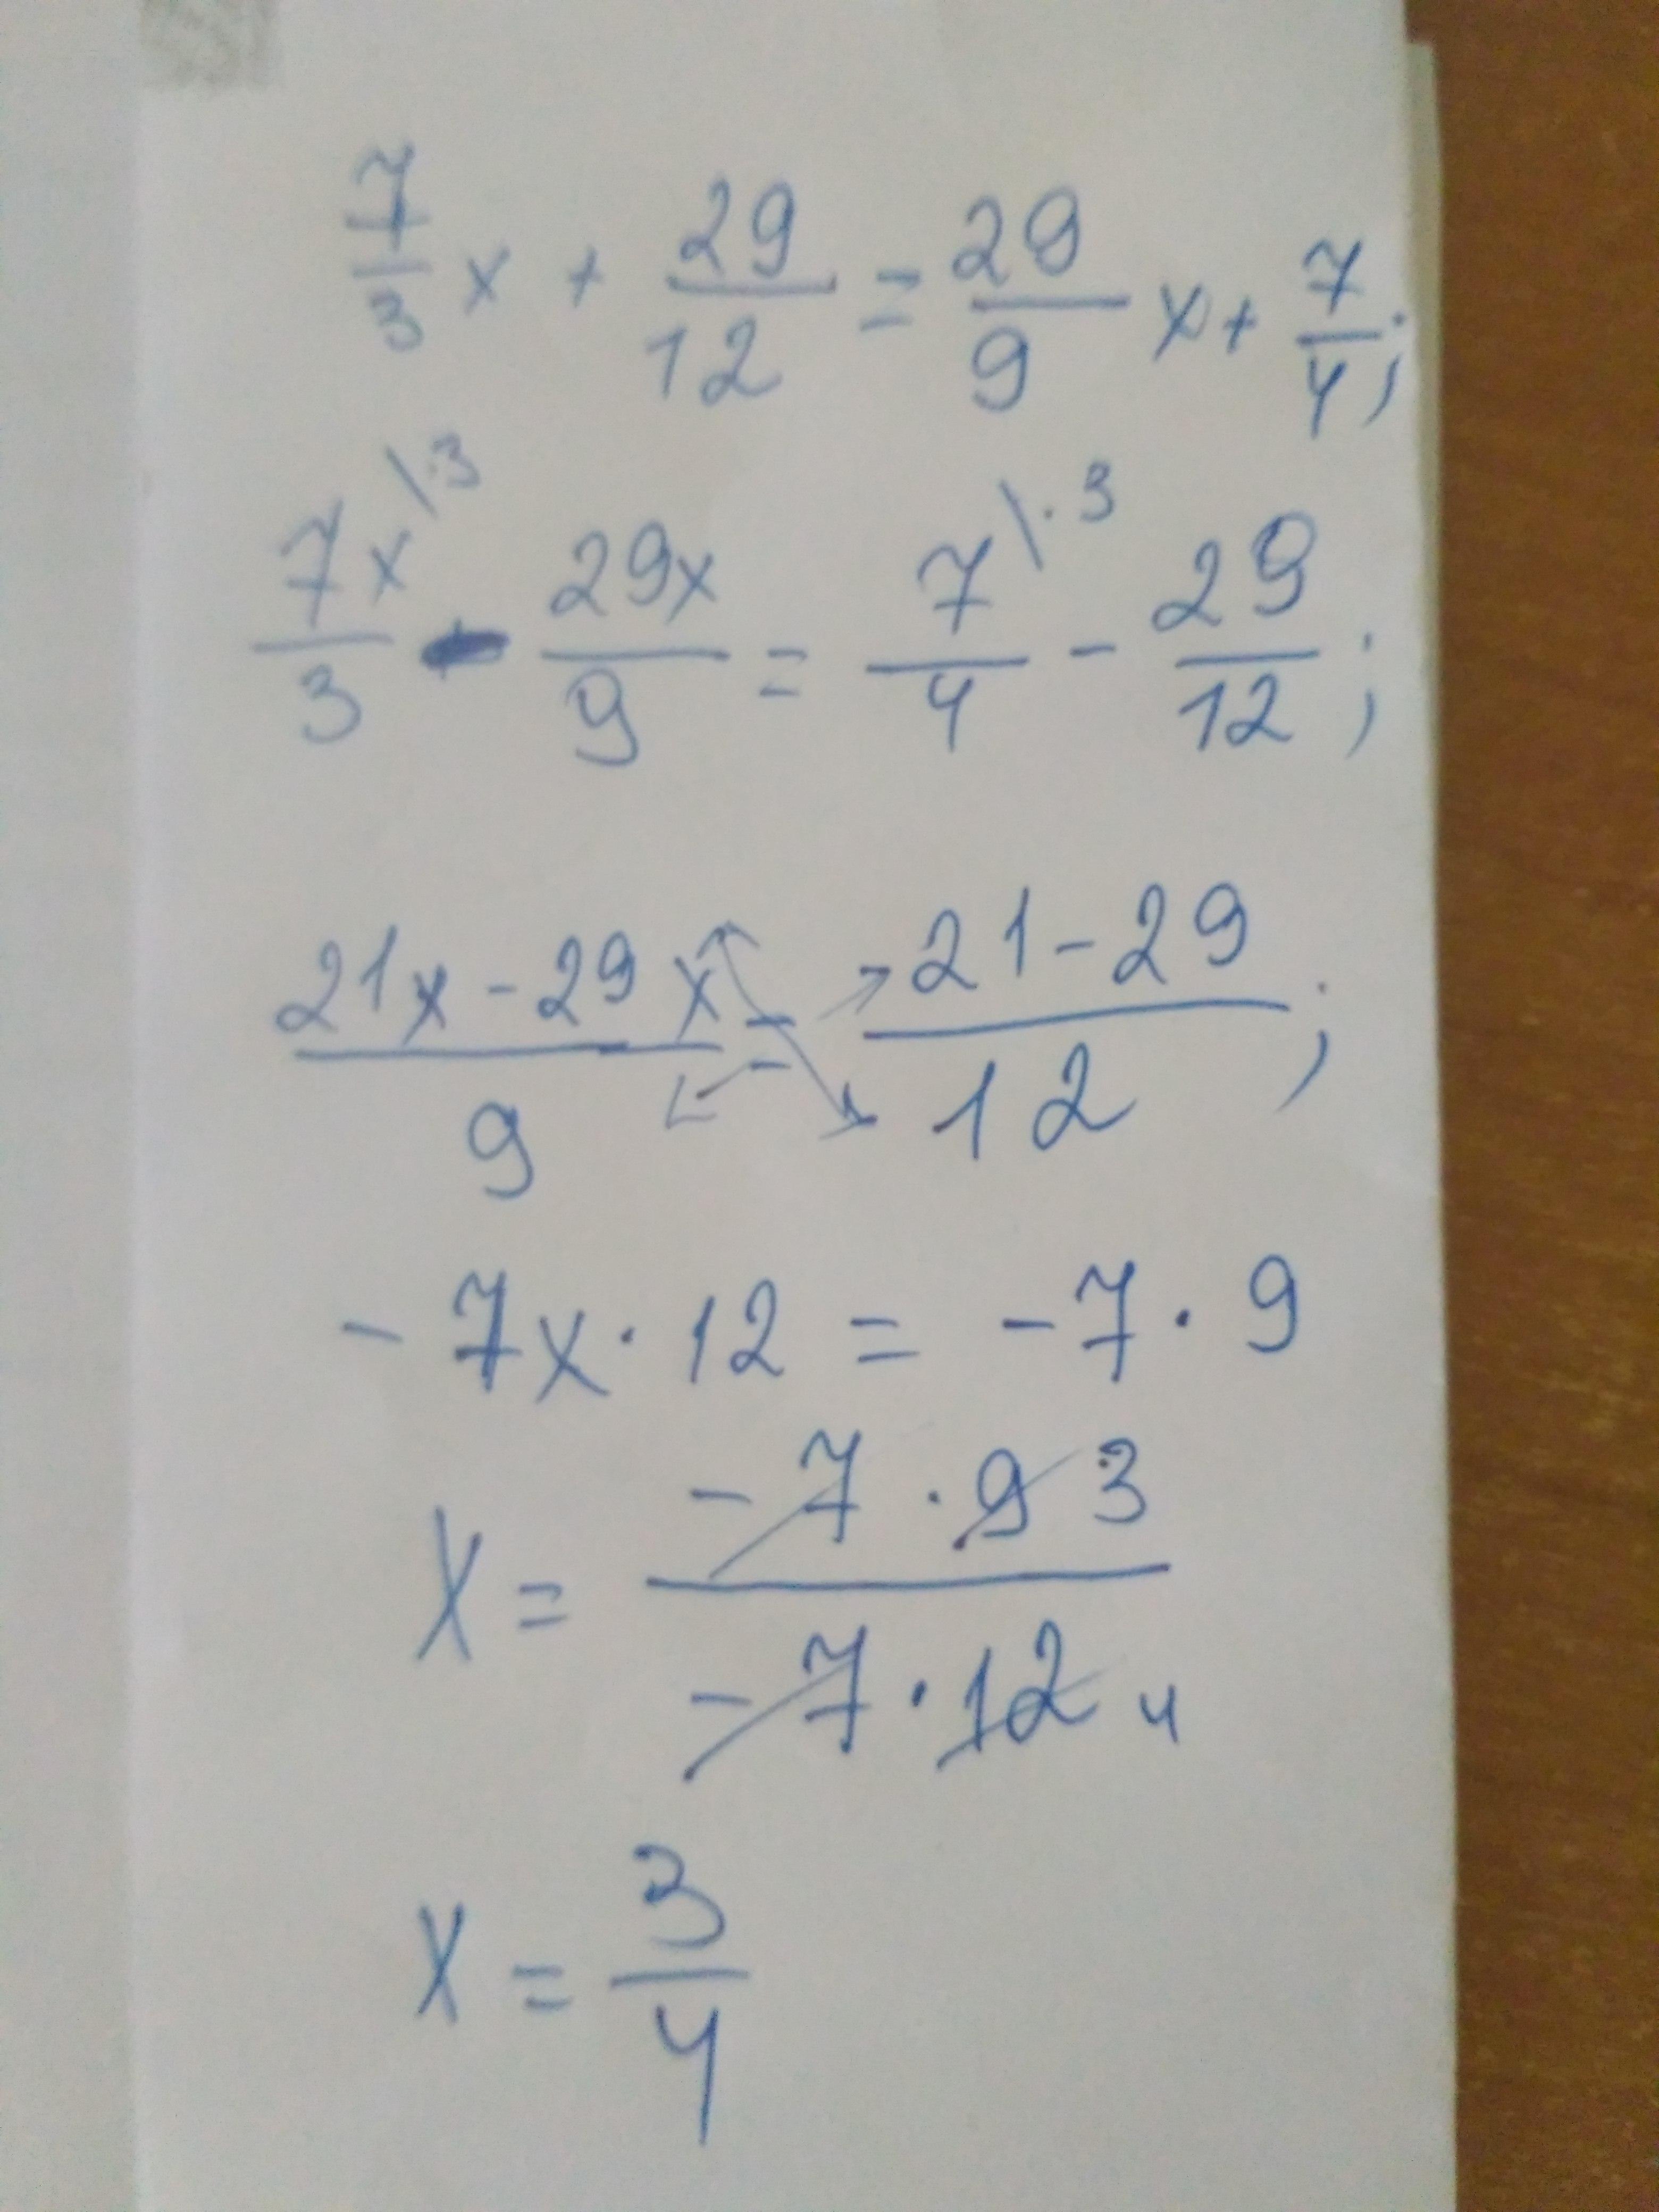 7/3 x + 29/12 = 29/9 x + 7/4;
7x\·3/3 - 29x/9 = 7\·3/4 - 29/12;
21x - 29x/9 = 21 - 29/12;
- 7x · 12 = - 7 · 9
x = - 7 · 9 3/- 7 · 12 4
x = 3/4